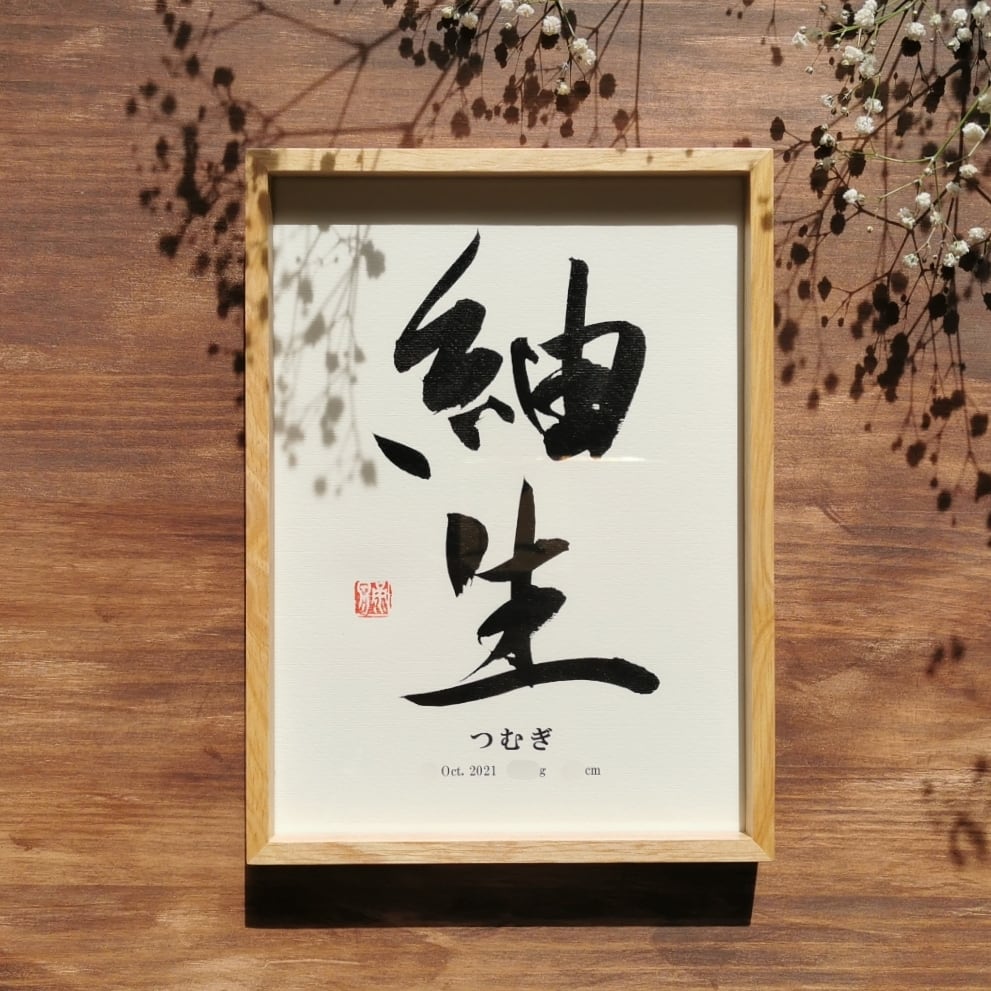 紬生
つむぎ
Oct. 2021 g cm